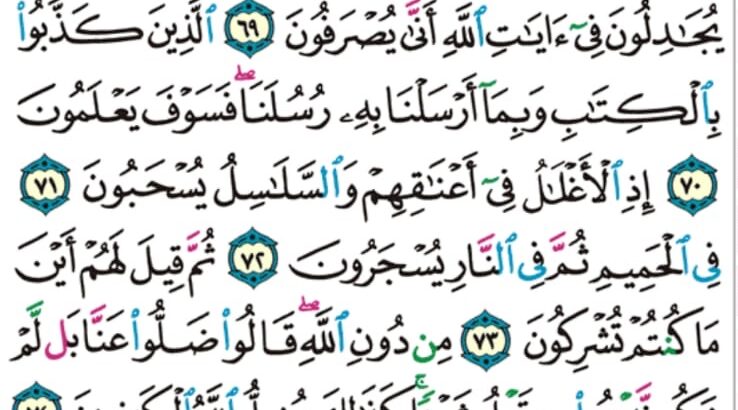 يُجَـٰدِلُونَ فِىٓ ءَايَـٰتِ ٱللَّهِ أَنَّىٰ يُصْرَفُونَ ٦٩ ٱلَّذِينَ كَذَّبُوا۟
بِٱلْكِتَـٰبِ وَبِمَآ أَرْسَلْنَا بِهِۦ رُسُلَنَا ۖ فَسَوْفَ يَعْلَمُونَ
٧٠ إِذِ ٱلْأَغْلَـٰلُ فِىٓ أَعْنَـٰقِهِمْ وَٱلسَّلَـٰسِلُ يُسْحَبُونَ ٧١
فِى ٱلْحَمِيمِ ثُمَّ فِى ٱلنَّارِ يُسْجَرُونَ ٧٢ ثُمَّ قِيلَ لَهُمْ أَيْنَ
مَا كُنتُمْ تُشْرِكُونَ ٧٣ مِن دُونِ ٱللَّهِ ۖ قَالُوا۟ ضَلُّوا۟ عَنَّا بَل لَّمْ